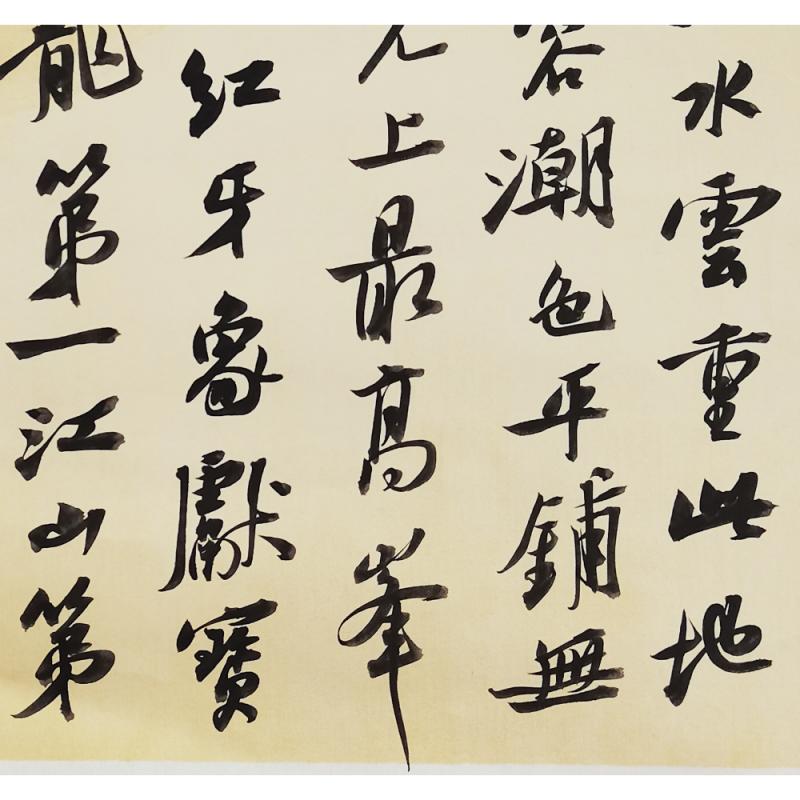 水雲重此地
潮色平鋪無
上最高峯
紅牙象獻寶
第一江山第